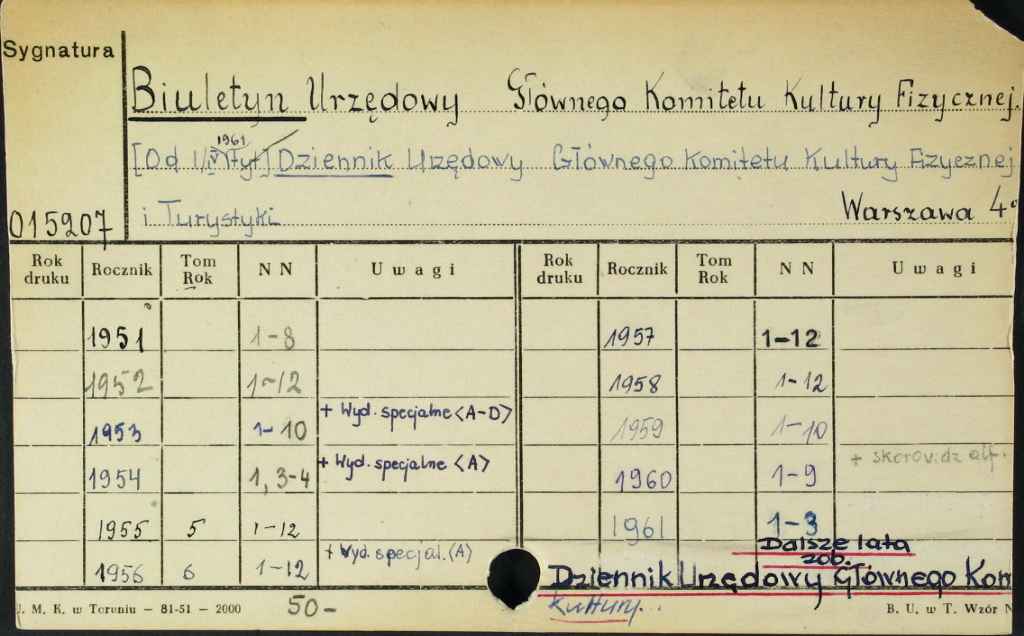 Sygnatura
Biuletyn Urzędowy Głównego Komitetu Kultury Fizycznej.
1961
[Od 1/IV Tyt.] Dziennik Urzędowy Głównego Komitetu Kultury Fizycznej
i Turystyki
Warszawa 4°
015907
Rok druku Rocznik Tom Rok N N Uwagi Rok druku Rocznik Tom Rok N N Uwagi
1951 1-8 1957 1-12
1952 1-12 1958 1-12
1953 1-10 + Wyd. specjalne <A-D> 1959 1-10
1954 1, 3-4 + Wyd. specjalne <A> 1960 1-9 + skorow. dz alf.
1955 5 1-12 1961 1-3
1956 6 1-12 + Wyd. specjal. <A>
Dalsze lata
zob.
Dziennik Urzędowy Głównego Kom
Kultury...
U. M. K. w Toruniu – 81-51 – 2000 50- B. U. w T. Wzór N